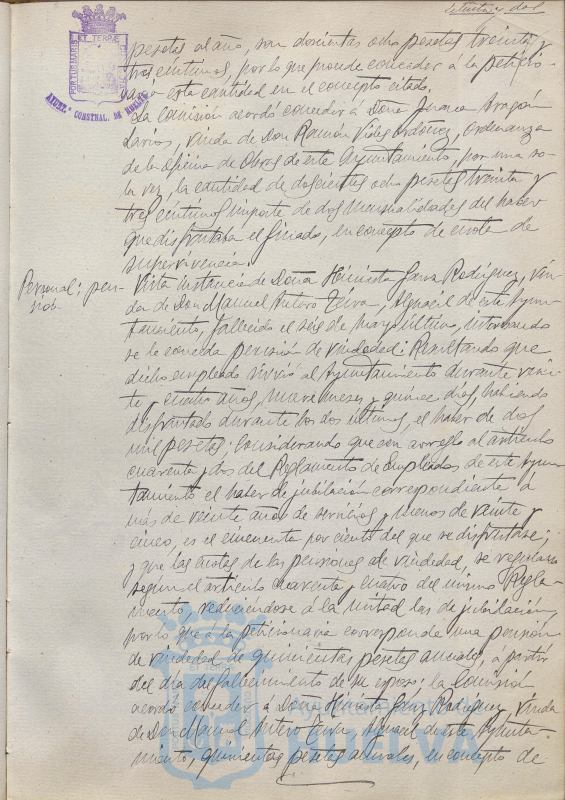 setenta y dos
PORTUS MARIS
ET TERRÆ
CUSTODIA
AYUNT.º CONSTNAL. DE HUELVA
pesetas al año, son doscientas ocho pesetas treinta y
tres céntimos, por lo que procede conceder á la peticio-
naria esta cantidad en el concepto citado.
La Comisión acordó conceder á Doña Juana Aragón
Larios, viuda de Don Ramón Vides Ordóñez, ordenanza
de la Oficina de Obras de este Ayuntamiento, por una so-
la vez, la cantidad de doscientas ocho pesetas treinta y
tres céntimos importe de dos mensualidades del haber
que disfrutaba el finado, en concepto de cuota de
supervivencia.
Personal: pen-
sión
Vista instancia de Doña Hiniesta Garra Rodríguez, viu-
da de Don Manuel Antero Leiva, Alguacil de este Ayun-
tamiento, fallecido el seis de mayo último, interesando
se le conceda pensión de viudedad: Resultando que
dicho empleado sirvió al Ayuntamiento durante vein-
te y cuatro años, nueve meses y quince días, habiendo
disfrutado durante los dos últimos, el haber de dos
mil pesetas; Considerando que con arreglo al artículo
cuarenta y dos del Reglamento de Empleados de este Ayun-
tamiento el haber de jubilación correspondiente a
más de veinte años de servicios y menos de veinte y
cinco, es el cincuenta por ciento del que se disfrutase;
y que las cuotas de las pensiones de viudedad, se regularán
según el artículo cuarenta y cuatro del mismo Regla-
mento, reduciéndose á la mitad las de jubilación,
por lo que á la peticionaria corresponde una pensión
de viudedad de quinientas pesetas anuales, á partir
del día del fallecimiento de su esposo; la Comisión
acordó conceder á Doña Hiniesta Garra Rodríguez, viuda
de Don Manuel Antero Leiva, Alguacil de este Ayunta-
miento, quinientas pesetas anuales, en concepto de
HUELVA